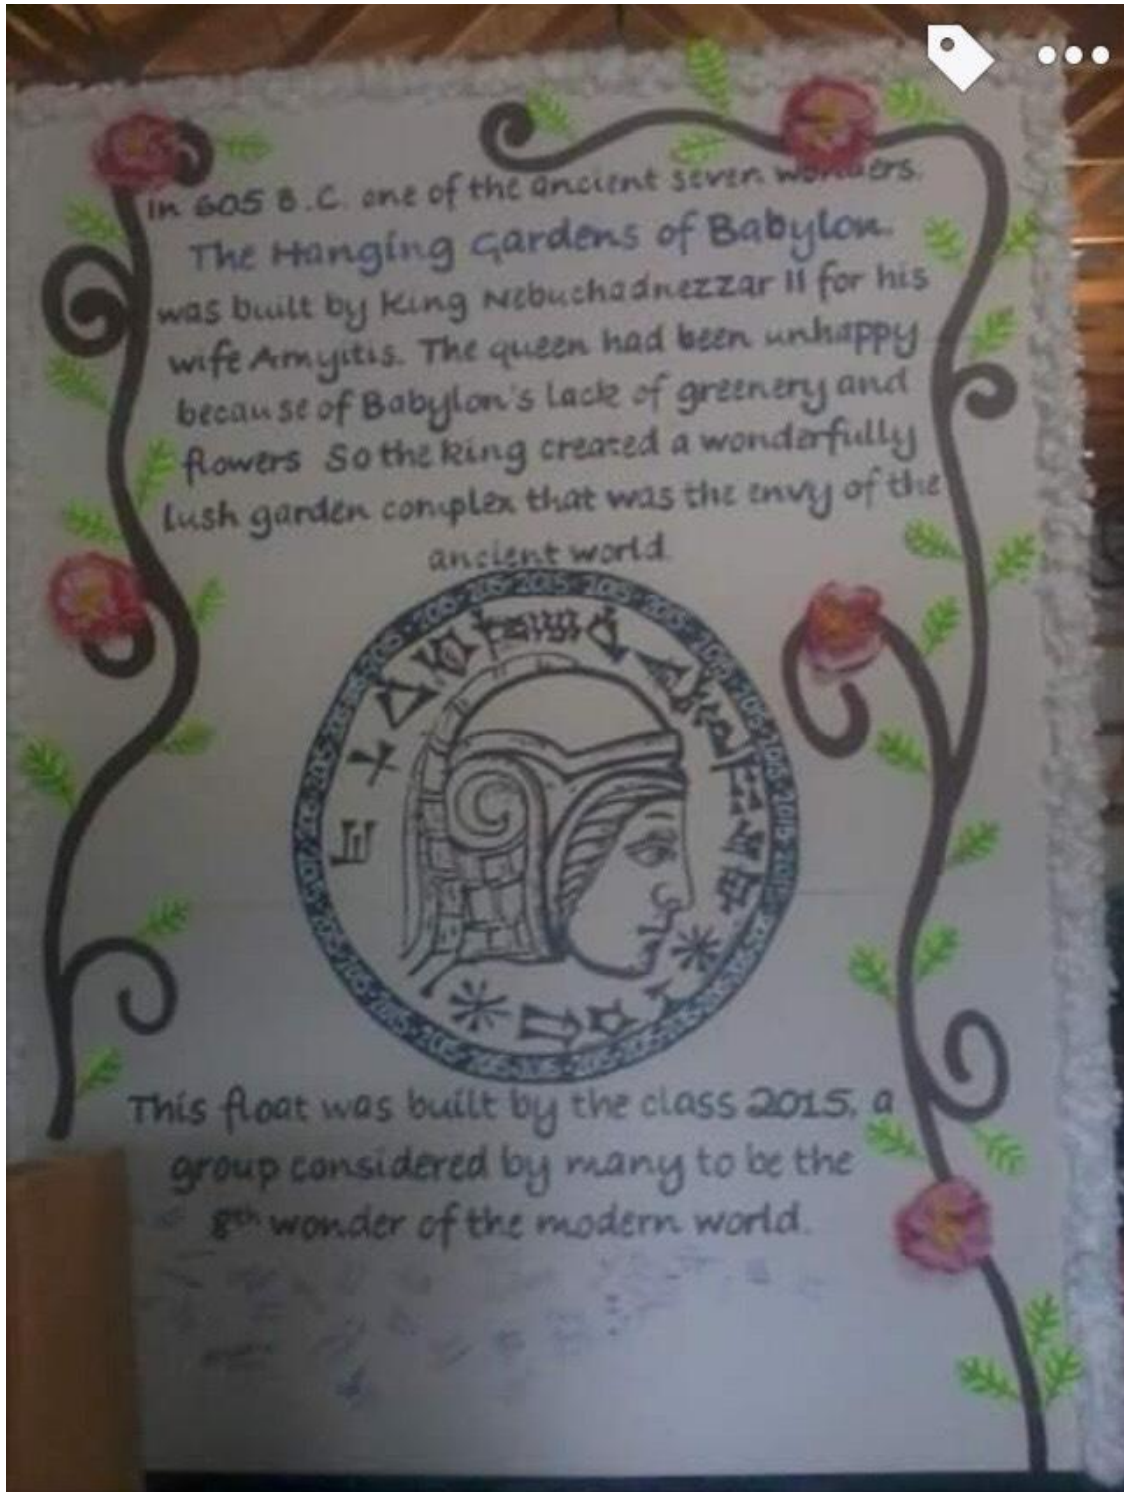 In 605 B.C. one of the ancient seven wonders.
The Hanging Gardens of Babylon.
was built by King Nebuchadnezzar II for his
wife Amyitis. The queen had been unhappy
because of Babylon's lack of greenery and
flowers So the king created a wonderfully
lush garden complex that was the envy of the
ancient world.
2015·2015·2015·2015·2015
This float was built by the class 2015, a
group considered by many to be the
8th wonder of the modern world.